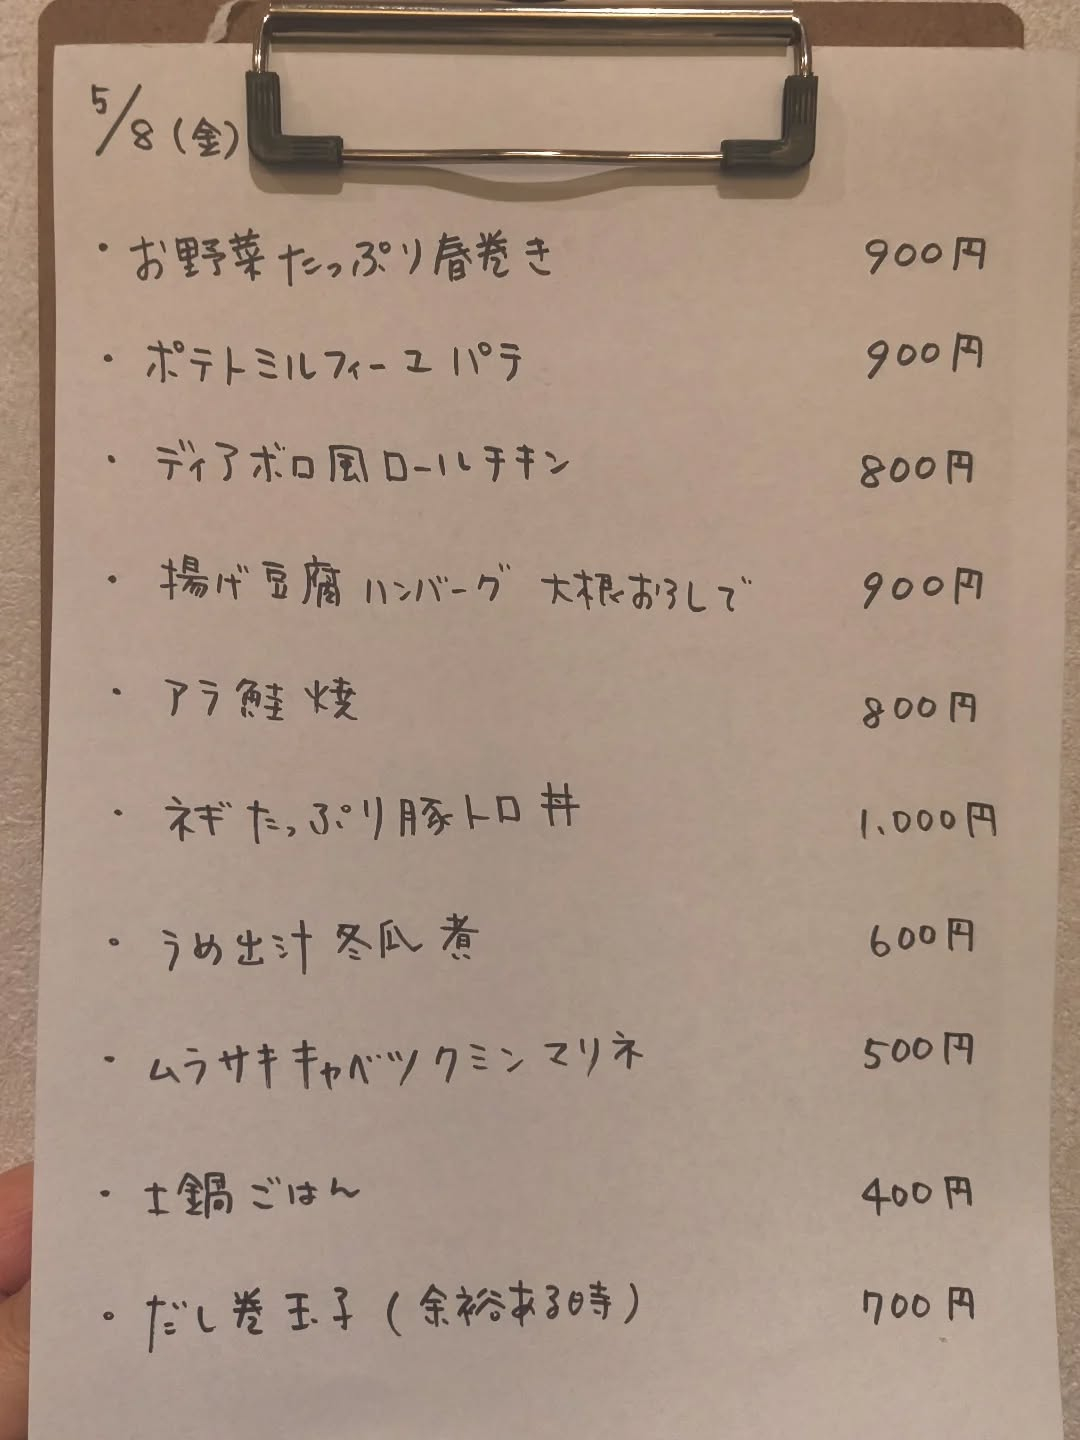 5/8(金)
・お野菜たっぷり春巻き 900円
・ポテトミルフィーユパテ 900円
・ディアボロ風ロールチキン 800円
・揚げ豆腐ハンバーグ 大根おろしで 900円
・アラ鮭焼 800円
・ネギたっぷり豚トロ丼 1.000円
・うめ出汁冬瓜煮 600円
・ムラサキキャベツクミンマリネ 500円
・土鍋ごはん 400円
・だし巻玉子(余裕ある時) 700円